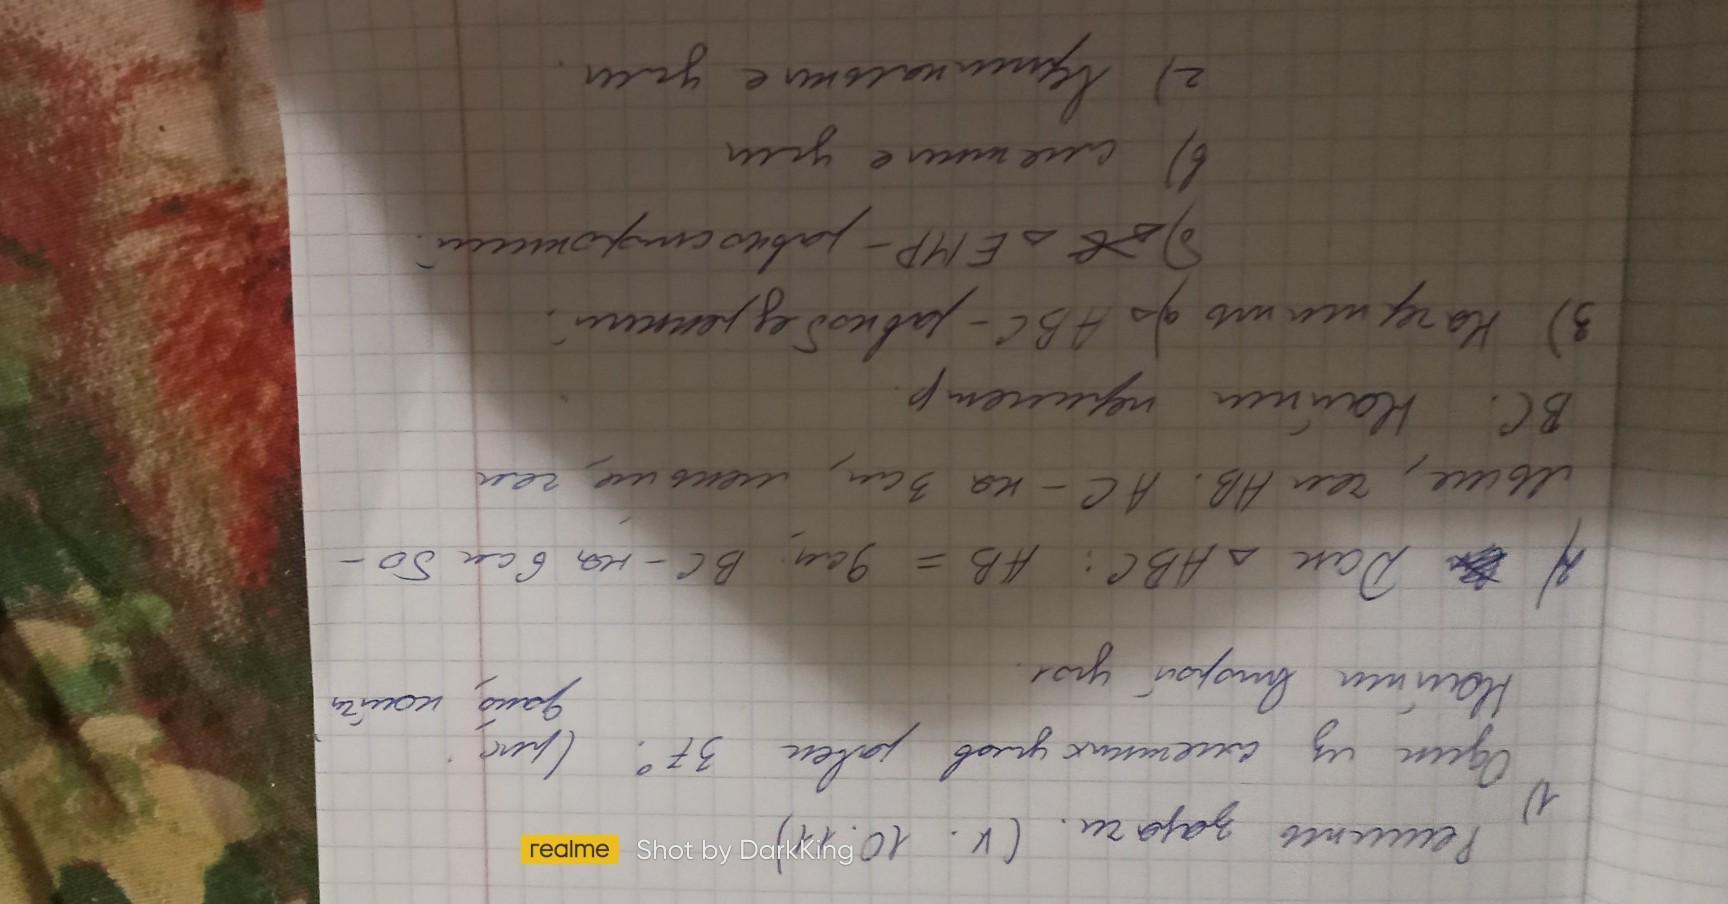 Решить задачи. (к. 10.11)
1) Один из смежных углов равен 37°. (рис.
дано, найти
Найти второй угол.
2) Дан △ABC: AB = 9см; BC - на 6см бо-
льше, чем AB. AC - на 3см, меньше, чем
BC. Найти периметр.
3) Начертить а) △ ABC - равнобедренный.
б) △ EMP - равносторонний.
в) смежные углы
г) Вертикальные углы.
realme Shot by DarkKing